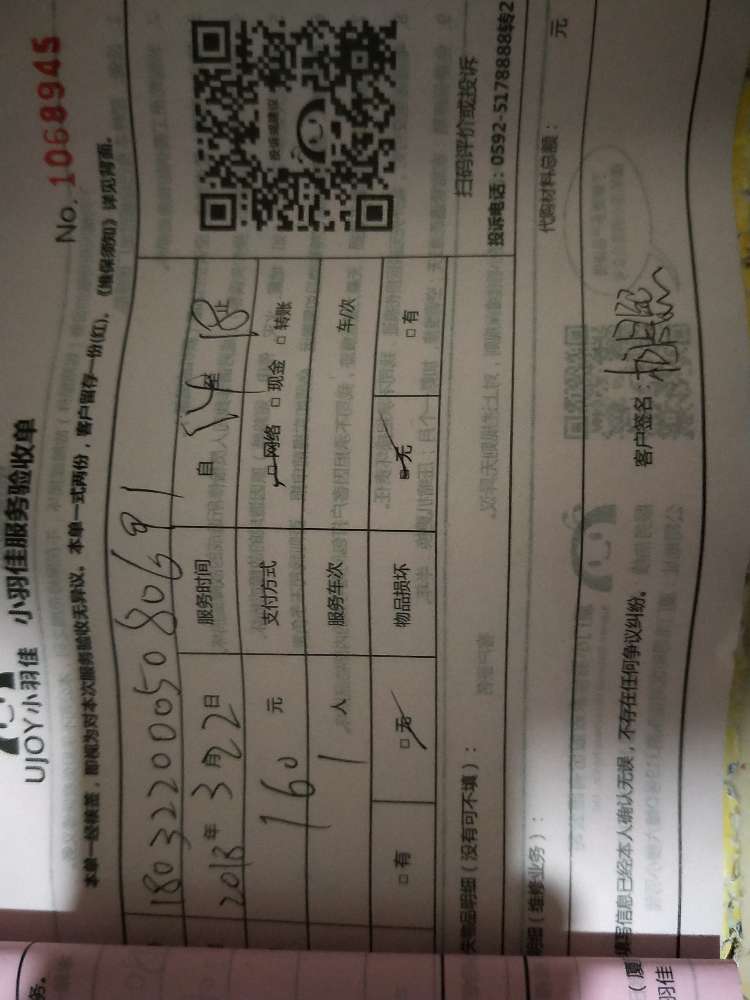 UJOY小羽佳 小羽佳服务验收单
No. 1068945
本单一经核签，即视为对本次服务验收无异议。本单一式两份，客户留存一份(红)。《维保须知》详见背面。
1803220005080691
2018年3月22日 服务时间 自14至18止
160元 支付方式 ☑网络 □现金 □转账
1人 服务车次 车/次
□有 ☑无 物品损坏 ☑无 □有
投诉或建议
扫码评价或投诉
投诉电话：0592-5178888转2
失物品明细（没有可不填）：
明细（维修业务）： 代购材料总额： 元
填写信息已经本人确认无误，不存在任何争议纠纷。 客户签名：
（厦
羽佳
务。